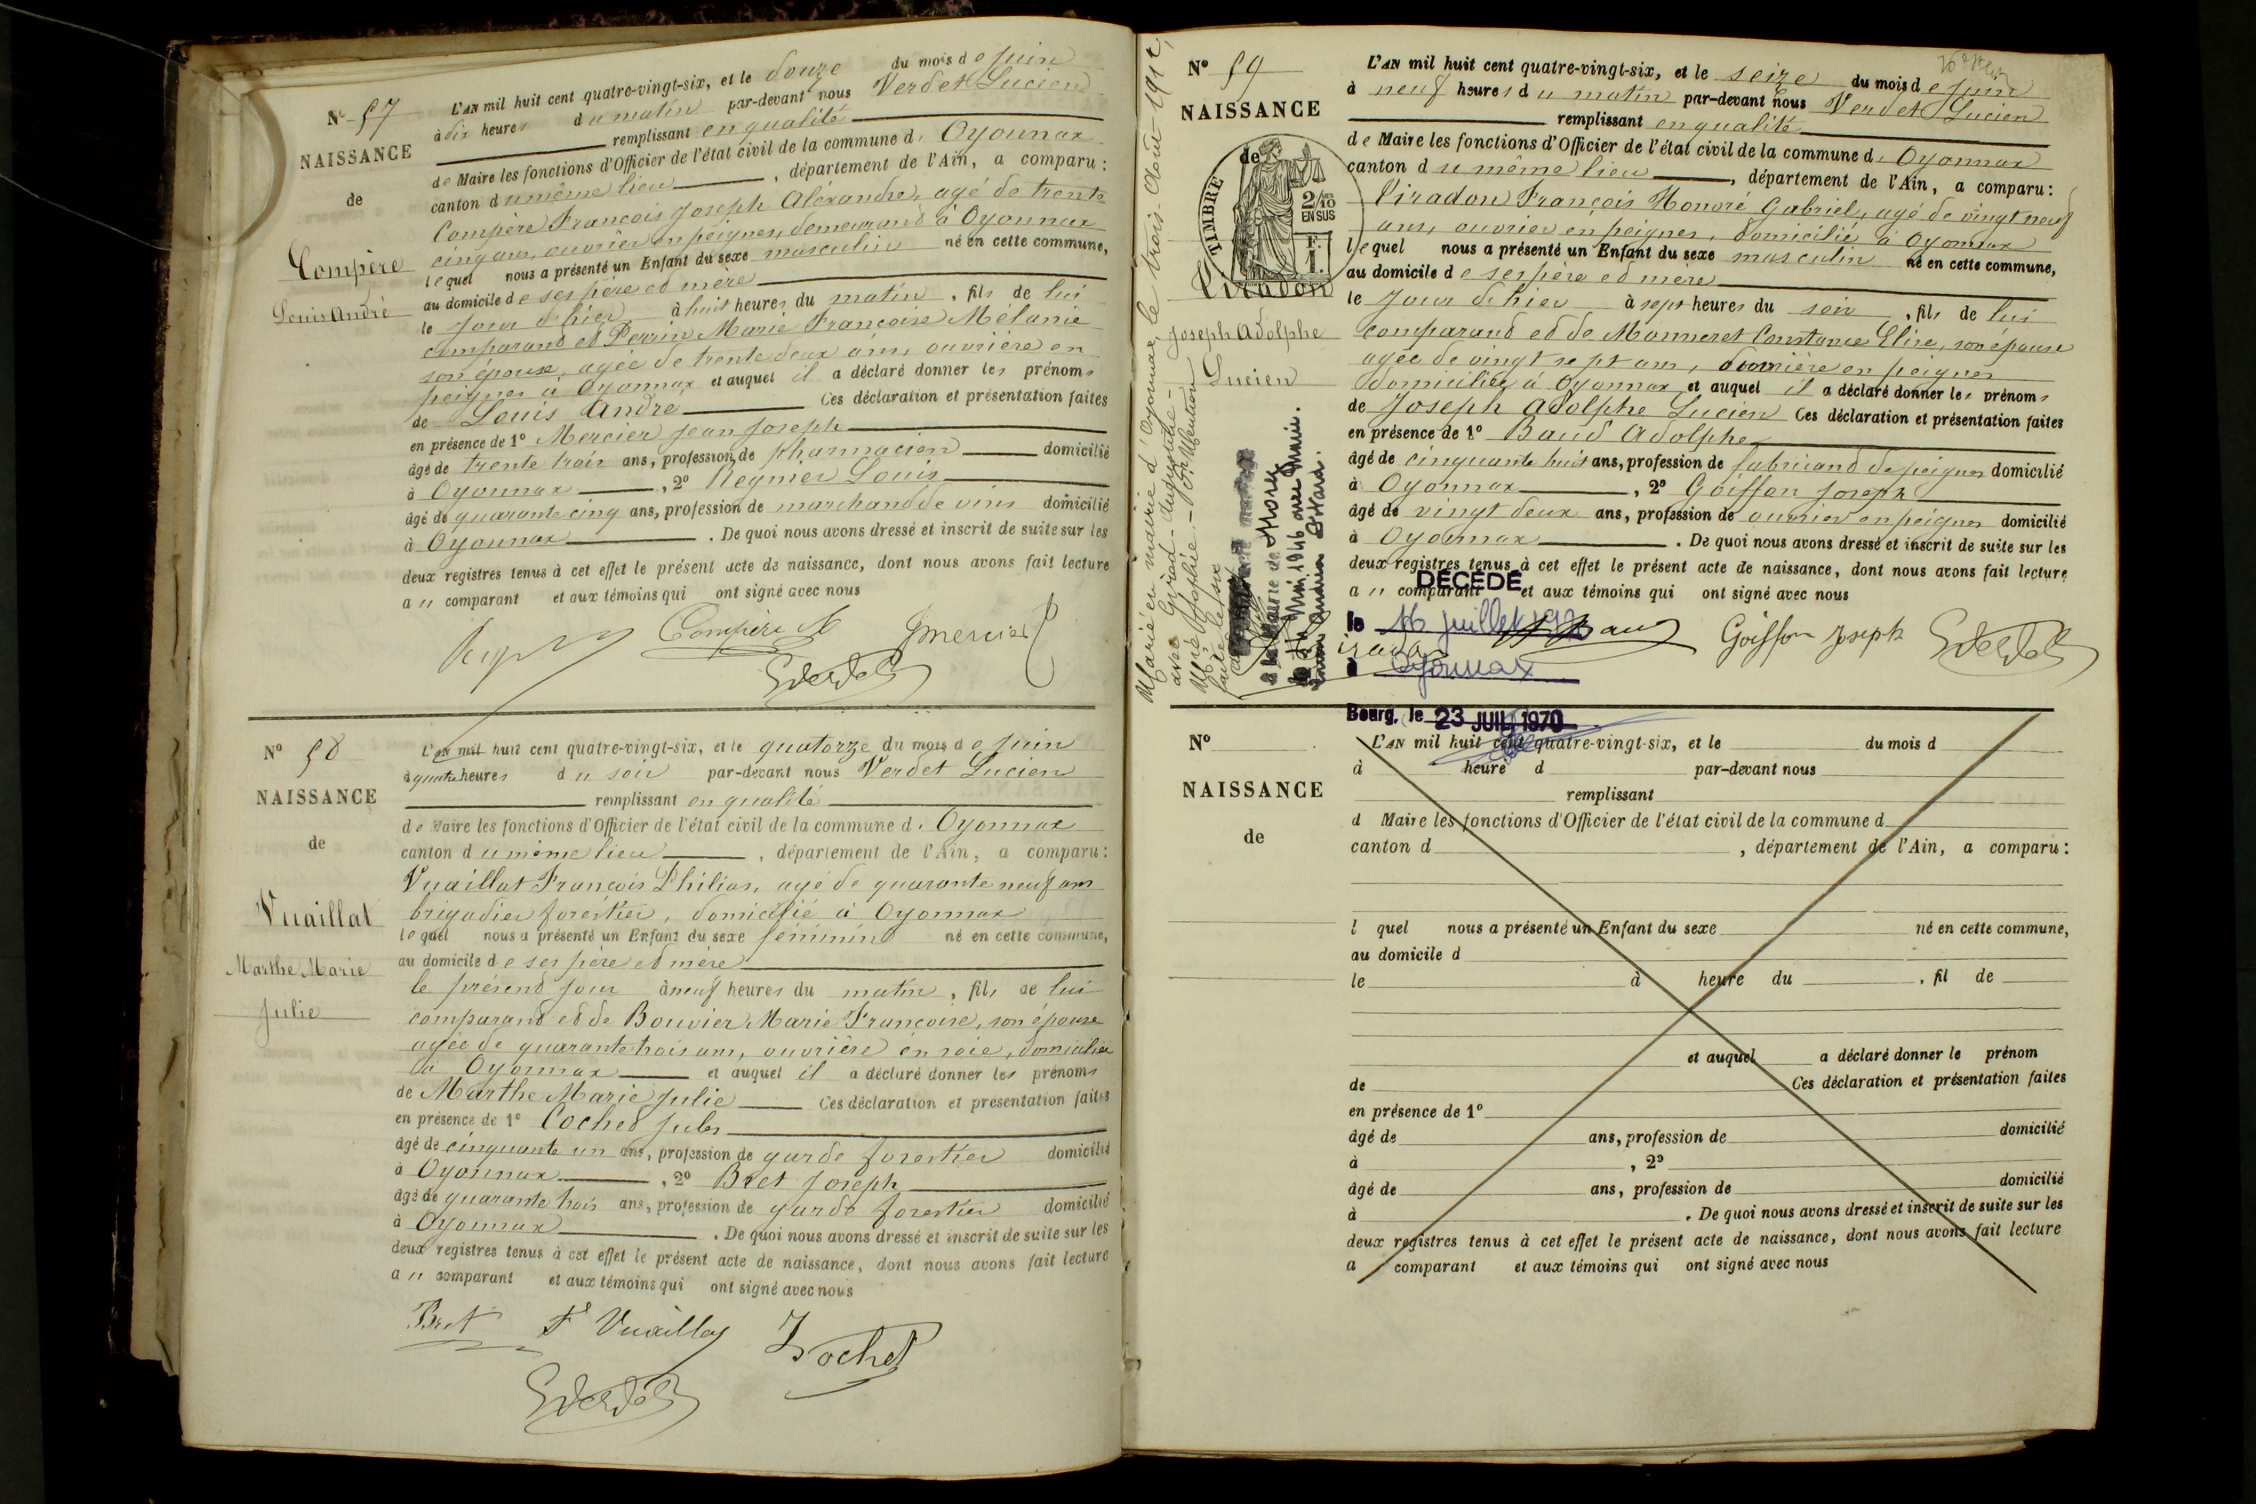 N° 57
NAISSANCE
de
Compère
Louis André
L'AN mil huit cent quatre-vingt-six, et le douze du mois de juin
à dix heures du matin par-devant nous Verdet Lucien
remplissant en qualité
de Maire les fonctions d'Officier de l'état civil de la commune d' Oyonnax
canton du même lieu, département de l'Ain, a comparu :
Compère François Joseph Aléxandre, agé de trente
cinq ans, ouvrier en peignes, demeurant à Oyonnax
lequel nous a présenté un Enfant du sexe masculin né en cette commune,
au domicile de ses père et mère
le jour d'hier à huit heures du matin, fils de lui
comparant et Perrin Marie Françoise Mélanie
son épouse, agée de trente deux ans, ouvrière en
peignes à Oyonnax et auquel il a déclaré donner les prénoms
de Louis André Ces déclaration et présentation faites
en présence de 1° Mercier Jean Joseph
âgé de trente trois ans, profession de pharmacien domicilié
à Oyonnax, 2° Regnier Louis
âgé de quarante cinq ans, profession de marchand de vins domicilié
à Oyonnax. De quoi nous avons dressé et inscrit de suite sur les
deux registres tenus à cet effet le présent acte de naissance, dont nous avons fait lecture
a u comparant et aux témoins qui ont signé avec nous
Compère JMercier
LVerdet
N° 58
NAISSANCE
de
Vuaillat
Marthe Marie
Julie
L'AN mil huit cent quatre-vingt-six, et le quatorze du mois de juin
à quatre heures du soir par-devant nous Verdet Lucien
remplissant en qualité
de Maire les fonctions d'Officier de l'état civil de la commune d' Oyonnax
canton du même lieu, département de l'Ain, a comparu :
Vuaillat François Philias, agé de quarante neuf ans
brigadier forestier, domicilié à Oyonnax
lequel nous a présenté un Enfant du sexe féminin né en cette commune,
au domicile de ses père et mère
le présent jour à neuf heures du matin, fils de lui
comparant et de Bouvier Marie Françoise, son épouse
agée de quarante trois ans, ouvrière en soie, domiciliée
à Oyonnax et auquel il a déclaré donner les prénoms
de Marthe Marie Julie Ces déclaration et présentation faites
en présence de 1° Cochet Jules
âgé de cinquante un ans, profession de garde forestier domicilié
à Oyonnax, 2° Bret Joseph
âgé de quarante trois ans, profession de garde forestier domicilié
à Oyonnax. De quoi nous avons dressé et inscrit de suite sur les
deux registres tenus à cet effet le présent acte de naissance, dont nous avons fait lecture
a u comparant et aux témoins qui ont signé avec nous
Bret F Vuaillat J Cochet
LVerdet
N° 59
NAISSANCE
de
TIMBRE
2/10
EN SUS
Viradon
Joseph Adolphe
Lucien
Marié en mairie d'Oyonnax, le trois Août 1912,
avec Girod Augustine
Mention
Mai 1946
L'AN mil huit cent quatre-vingt-six, et le seize du mois de juin
à neuf heures du matin par-devant nous Verdet Lucien
remplissant en qualité
de Maire les fonctions d'Officier de l'état civil de la commune d' Oyonnax
canton du même lieu, département de l'Ain, a comparu :
Viradon François Honoré Gabriel, agé de vingt neuf
ans, ouvrier en peignes, domicilié à Oyonnax
lequel nous a présenté un Enfant du sexe masculin né en cette commune,
au domicile de ses père et mère
le jour d'hier à sept heures du soir, fils de lui
comparant et de Monneret Constance Elise, son épouse
agée de vingt sept ans, ouvrière en peignes
domiciliée à Oyonnax et auquel il a déclaré donner les prénoms
de Joseph Adolphe Lucien Ces déclaration et présentation faites
en présence de 1° Baud Adolphe
âgé de cinquante huit ans, profession de fabricant de peignes domicilié
à Oyonnax, 2° Goiffon Joseph
âgé de vingt deux ans, profession de ouvrier en peignes domicilié
à Oyonnax. De quoi nous avons dressé et inscrit de suite sur les
deux registres tenus à cet effet le présent acte de naissance, dont nous avons fait lecture
a u comparant et aux témoins qui ont signé avec nous
DÉCÉDÉ
le 16 juillet
à Oyonnax
Baud Goiffon Joseph LVerdet
Bourg, le 23 JUIL 1970
N°
NAISSANCE
de
L'AN mil huit cent quatre-vingt-six, et le du mois d
à heure d par-devant nous
remplissant
d Maire les fonctions d'Officier de l'état civil de la commune d
canton d , département de l'Ain, a comparu :
l quel nous a présenté un Enfant du sexe né en cette commune,
au domicile d
le à heure du , fil de
et auquel a déclaré donner le prénom
de Ces déclaration et présentation faites
en présence de 1°
âgé de ans, profession de domicilié
à , 2°
âgé de ans, profession de domicilié
à . De quoi nous avons dressé et inscrit de suite sur les
deux registres tenus à cet effet le présent acte de naissance, dont nous avons fait lecture
a comparant et aux témoins qui ont signé avec nous